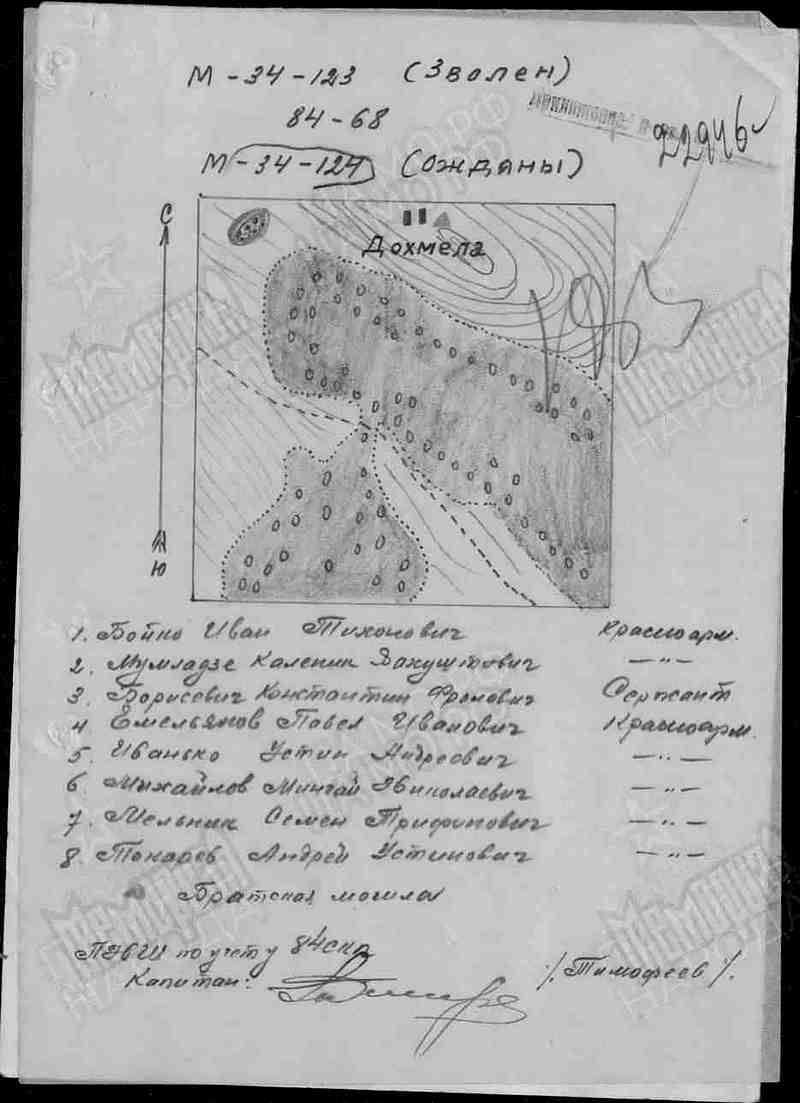 М-34-123 (Зволен)
84-68
М-34-124 (Ождяны)
22946
С
Дохмела
Ю
1. Бойко Иван Тихонович Красноарм.
2. Мумладзе Каленик Вахуштиович —"—
3. Борисевич Константин Фролович Сержант
4 Емельянов Павел Иванович Красноарм.
5. Иванько Устин Андреевич —"—
6. Михайлов Мингай Николаевич —"—
7. Мельник Семен Трифонович —"—
8. Токарев Андрей Устинович —"—
Братская могила
ПНШ по учету 84 скп
Капитан: /Тимофеев/.